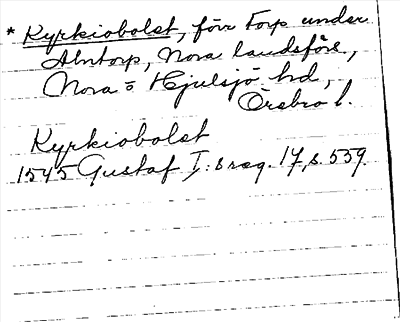 * Kyrkiobolst, förr torp under
Alntorp, Nora landsförs.,
Nora o Hjulsjö hd,
Örebro l.
Kyrkiobolst
1545 Gustaf I:s reg. 17, s. 559.